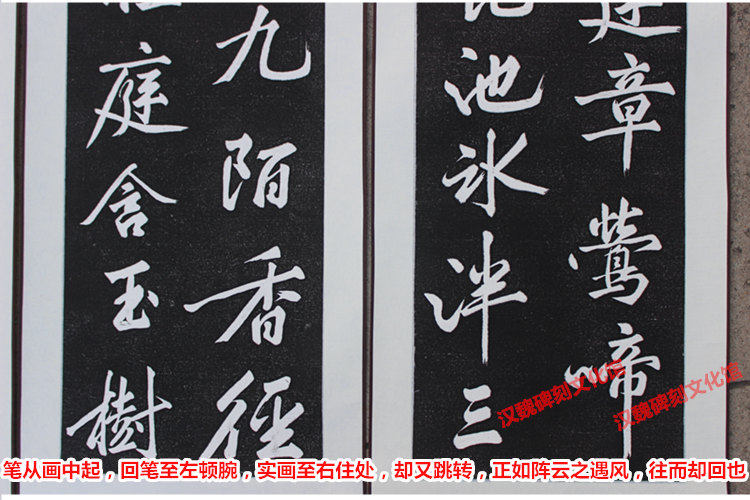 章鶯啼
池氷泮三
九陌香徑
庭含玉樹
汉魏碑刻文化馆
汉魏碑刻文化馆
笔从画中起，回笔至左顿腕，实画至右住处，却又跳转，正如阵云之遇风，往而却回也